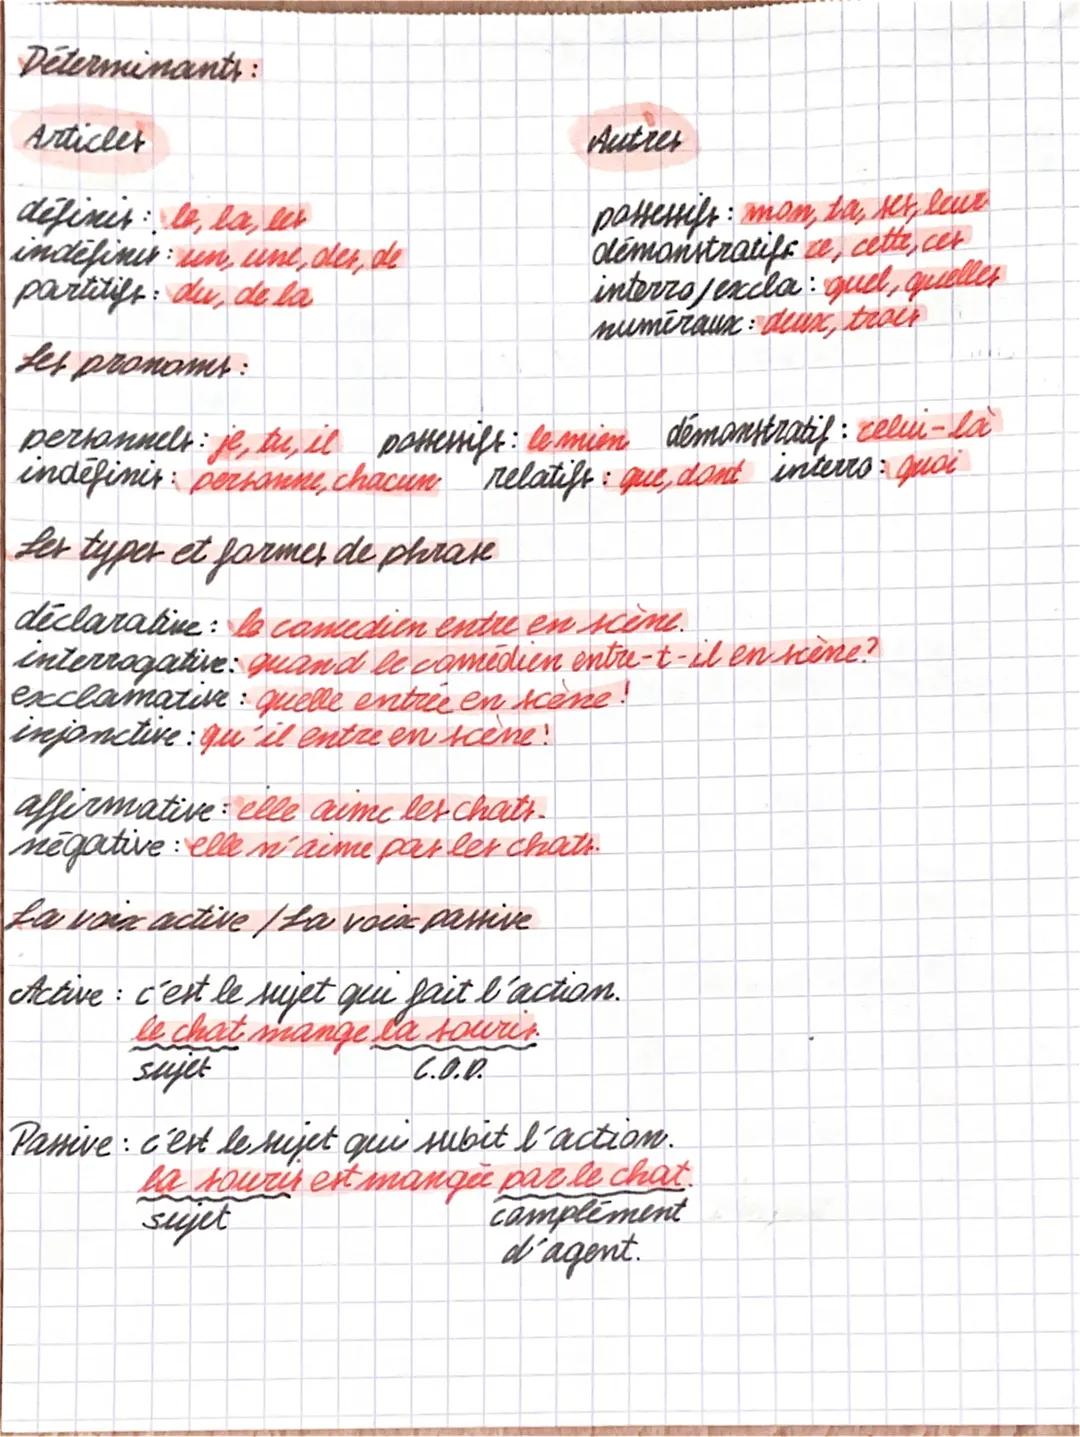 Déterminants :
Articles
Autres
définis : le, la, les
indéfinis : un, une, des, de
partitifs : du, de la
possessifs : mon, ta, ses, leur
démonstratifs : ce, cette, ces
interro/excla : quel, quelles
numéraux : deux, trois
Les pronoms :
personnels : je, tu, il possessifs : le mien démonstratif : celui-là
indéfinis : personne, chacun relatifs : que, dont interro : quoi
Les types et formes de phrase
déclarative : le comedien entre en scène.
interrogative : quand le comédien entre-t-il en scène ?
exclamative : quelle entrée en scène !
injonctive : qu'il entre en scène !
affirmative : elle aime les chats.
négative : elle n'aime pas les chats.
La voix active / La voix passive
Active : c'est le sujet qui fait l'action.
le chat mange la souris.
sujet C.O.D.
Passive : c'est le sujet qui subit l'action.
la souris est mangée par le chat.
sujet complément
d'agent.